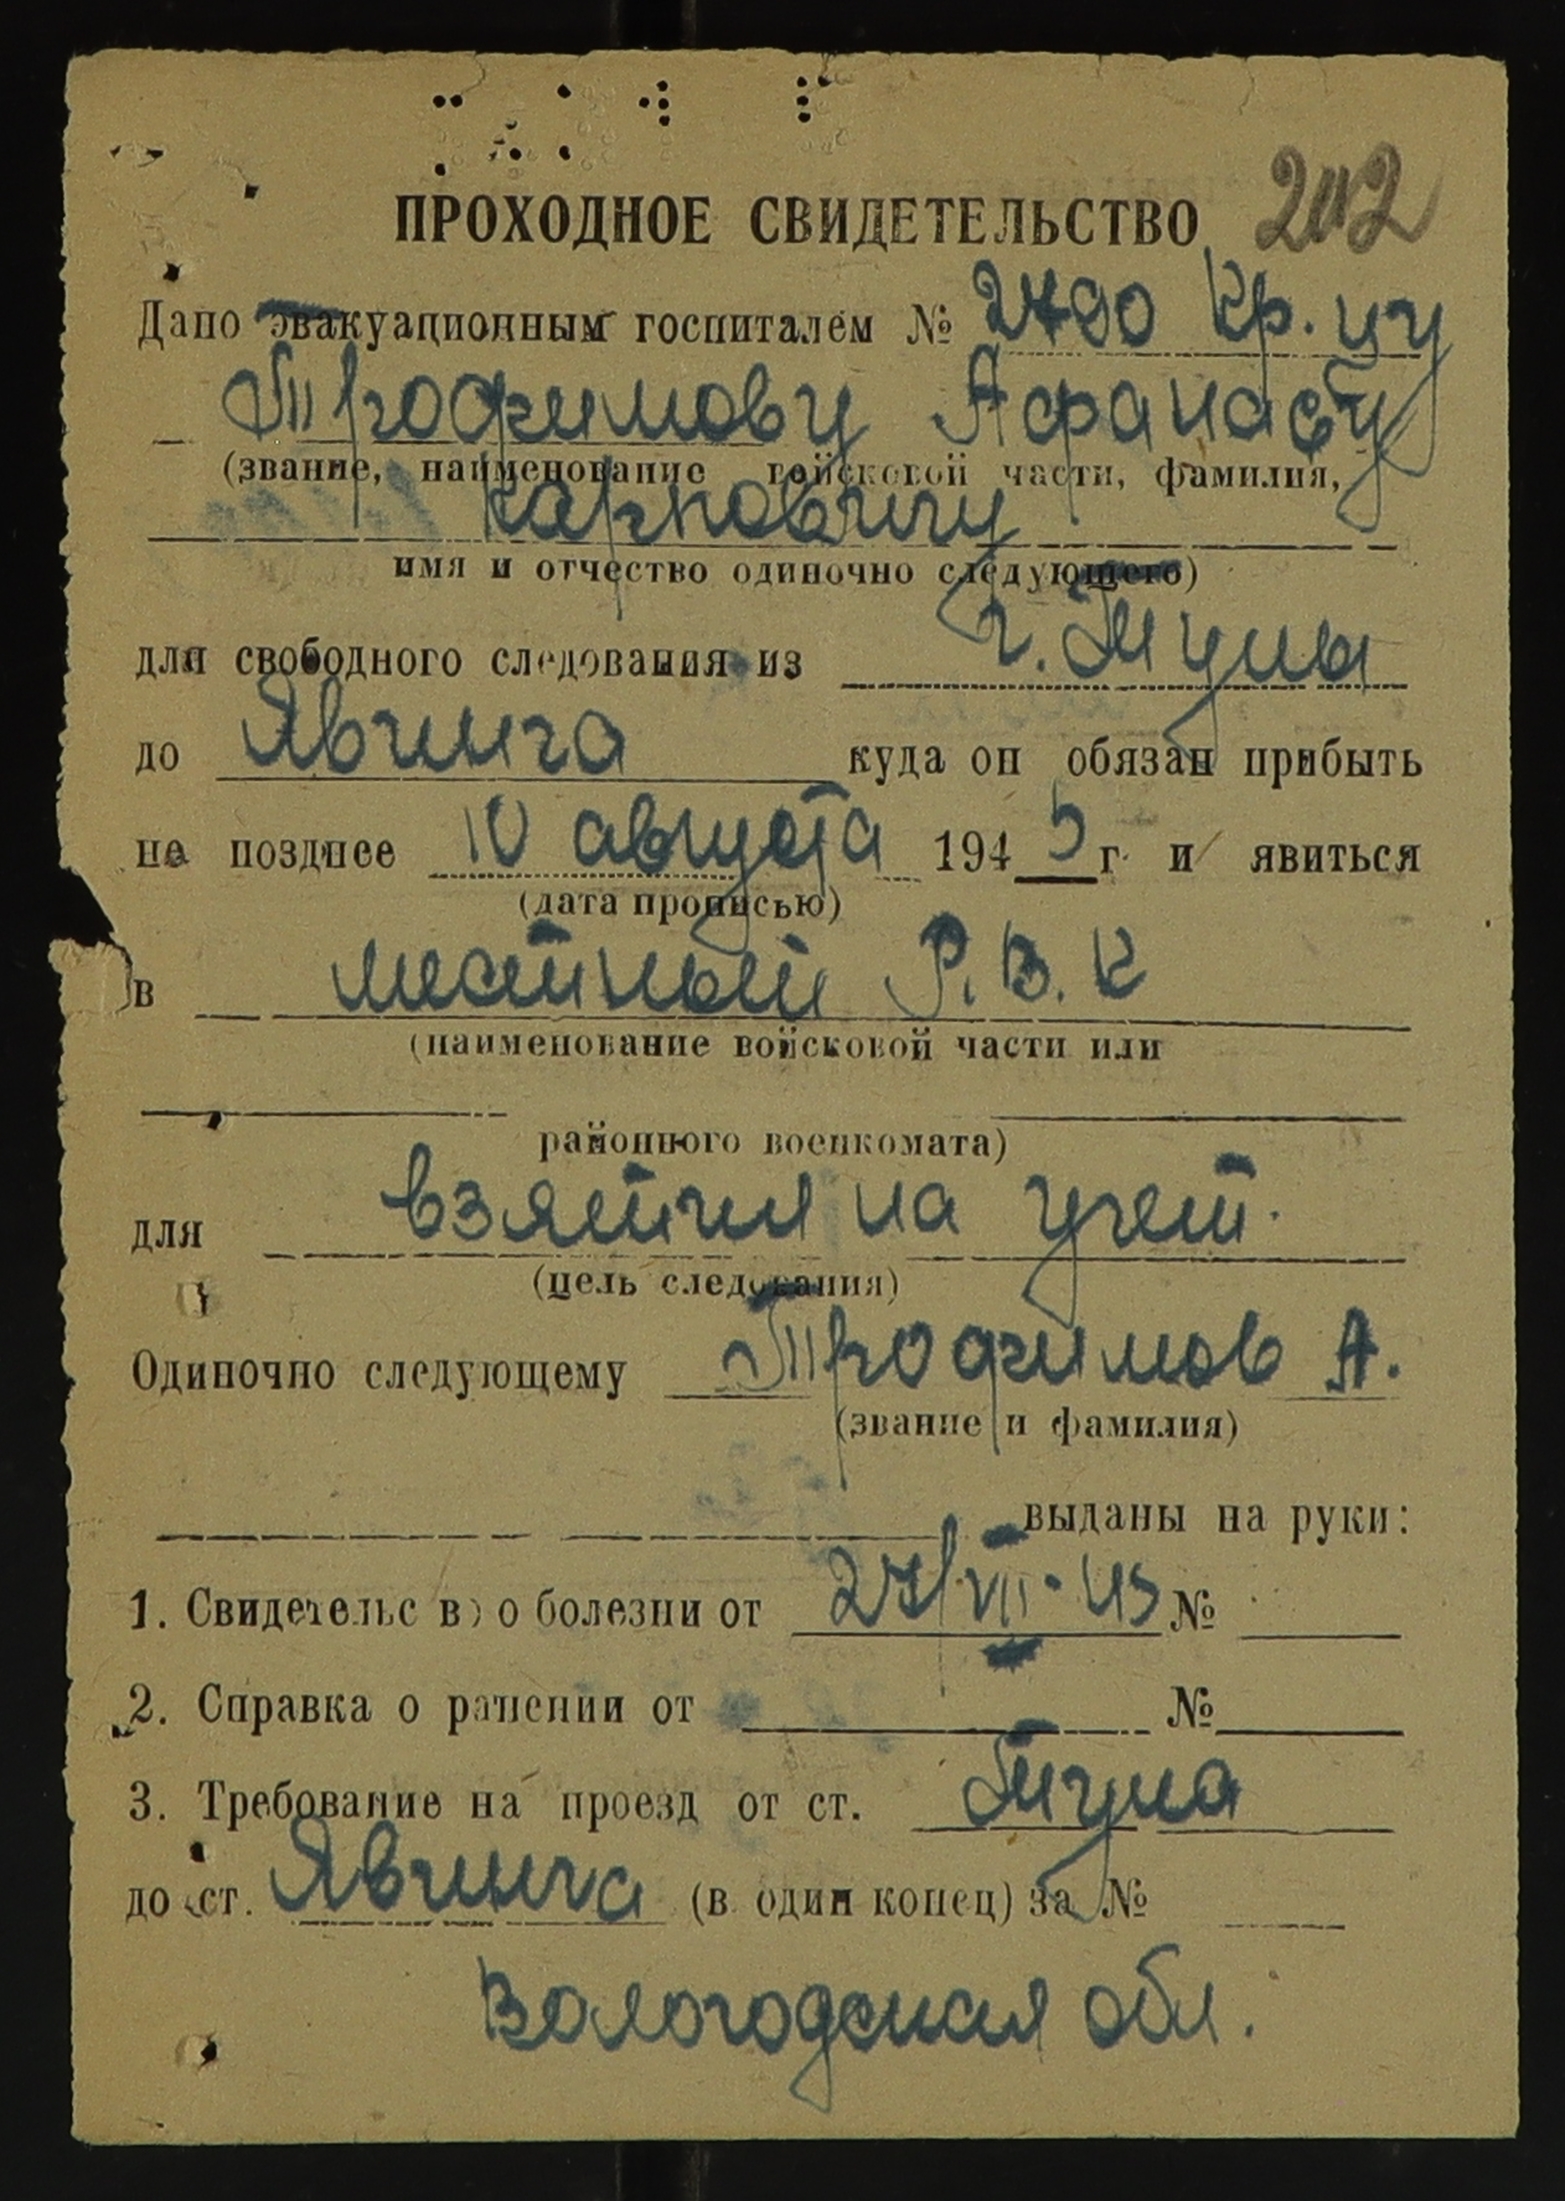 202
ПРОХОДНОЕ СВИДЕТЕЛЬСТВО
Дано эвакуационным госпиталем № 2790 Кр-цу
Трофимову Афанасу
(звание, наименование войсковой части, фамилия,
Карповичу
имя и отчество одиночно следующего)
для свободного следования из г. Тулы
до Явчинга куда он обязан прибыть
не позднее 10 августа 1945 г. и явиться
(дата прописью)
в местный Р.В.К
(наименование войсковой части или
районного военкомата)
для взятия на учет.
(цель следования)
Одиночно следующему Трофимов А.
(звание и фамилия)
выданы на руки:
1. Свидетельство о болезни от 27/VII-45 №
2. Справка о ранении от №
3. Требование на проезд от ст. Тула
до ст. Явчинга (в один конец) за №
Вологодская обл.